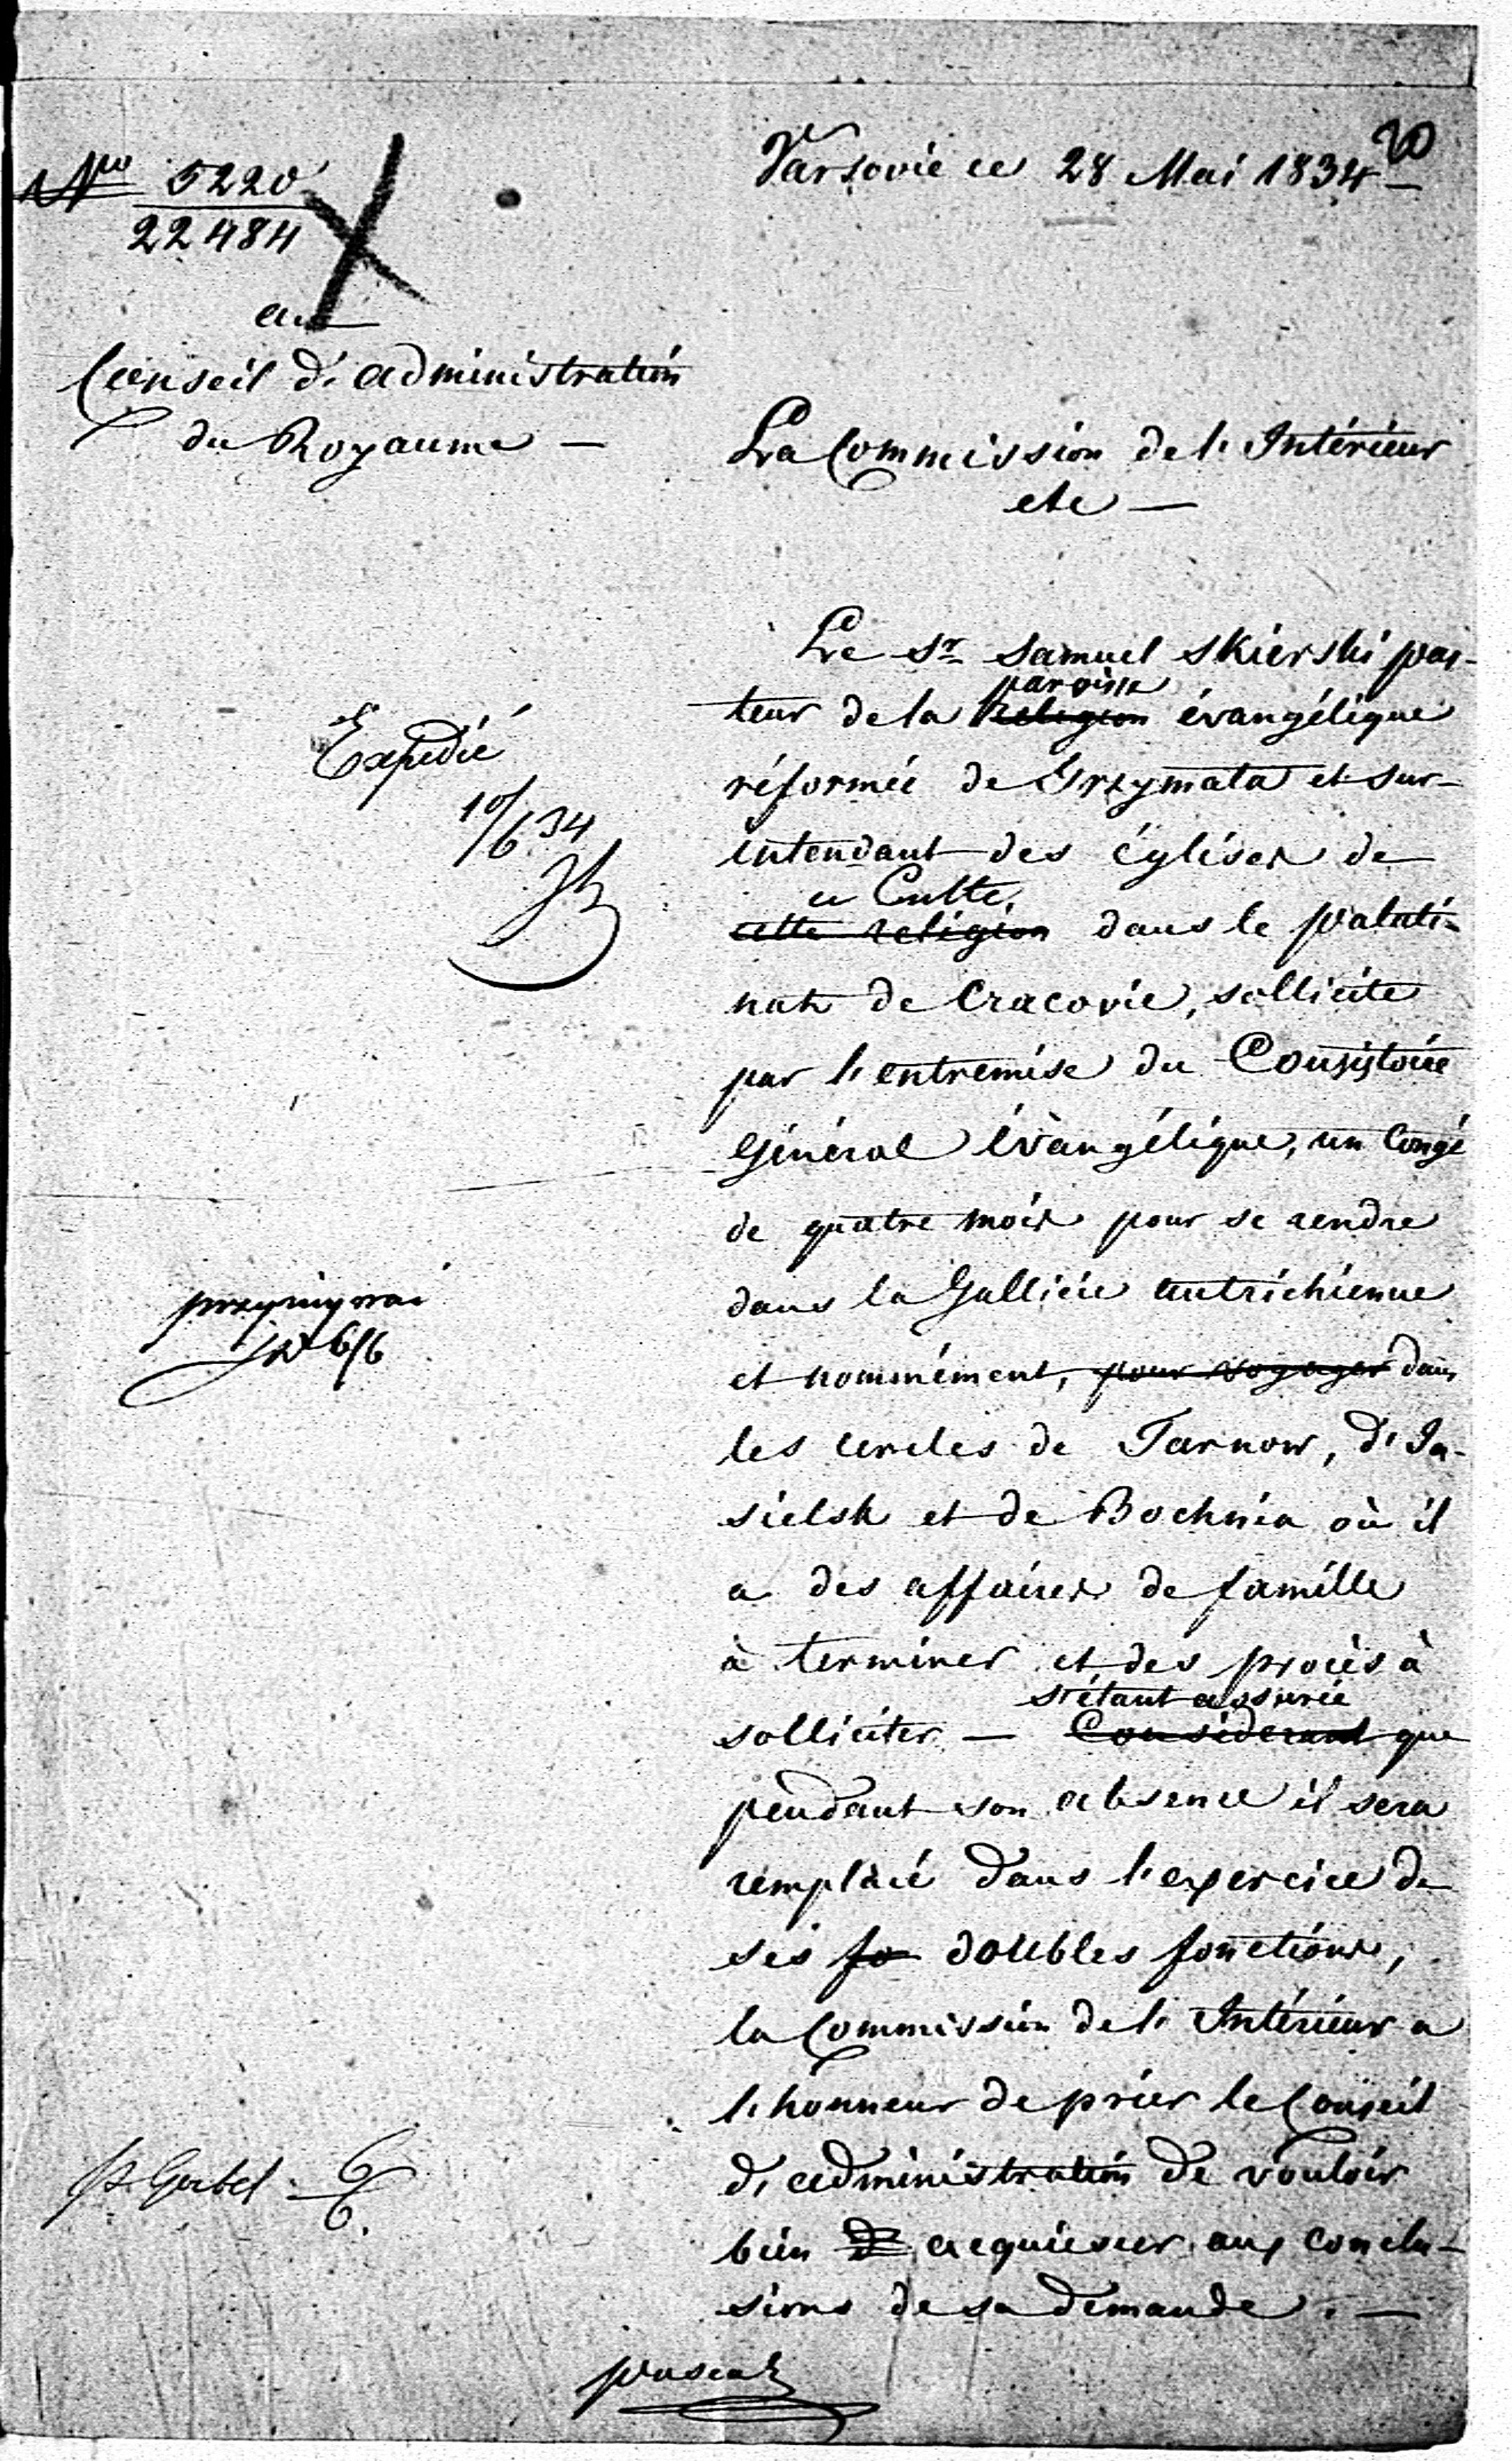 20
Varsovie ce 28 Mai 1834
Nro 5220
22484
au
Conseil d'administration
du Royaume —
La Commission de l'Intérieur
etc —
Le Sr Samuel Skierski pas-
paroisse
teur de la religion évangélique
réformée de Grzymata et sur-
intendant des églises de
ce Culte,
cette religion dans le palati-
nat de Cracovie, sollicite
par l'entremise du Consistoire
Général évangélique, un Congé
de quatre mois pour se rendre
dans la Gallicie autrichienne
et nommément, pour voyager dans
les cercles de Tarnow, d'Ia-
sielsk et de Bochnia où il
a des affaires de famille
à terminer et des procès à
s'étant assurée
solliciter — Considerant que
pendant son absence il sera
remplacé dans l'exercice de
ses fo doubles fonctions,
la Commission de l'Intérieur a
l'honneur de prier le Conseil
d'administration de vouloir
bien acquiescer aux conclu-
sions de sa demande. —
Expedié
10/6 34
6/6
6/6